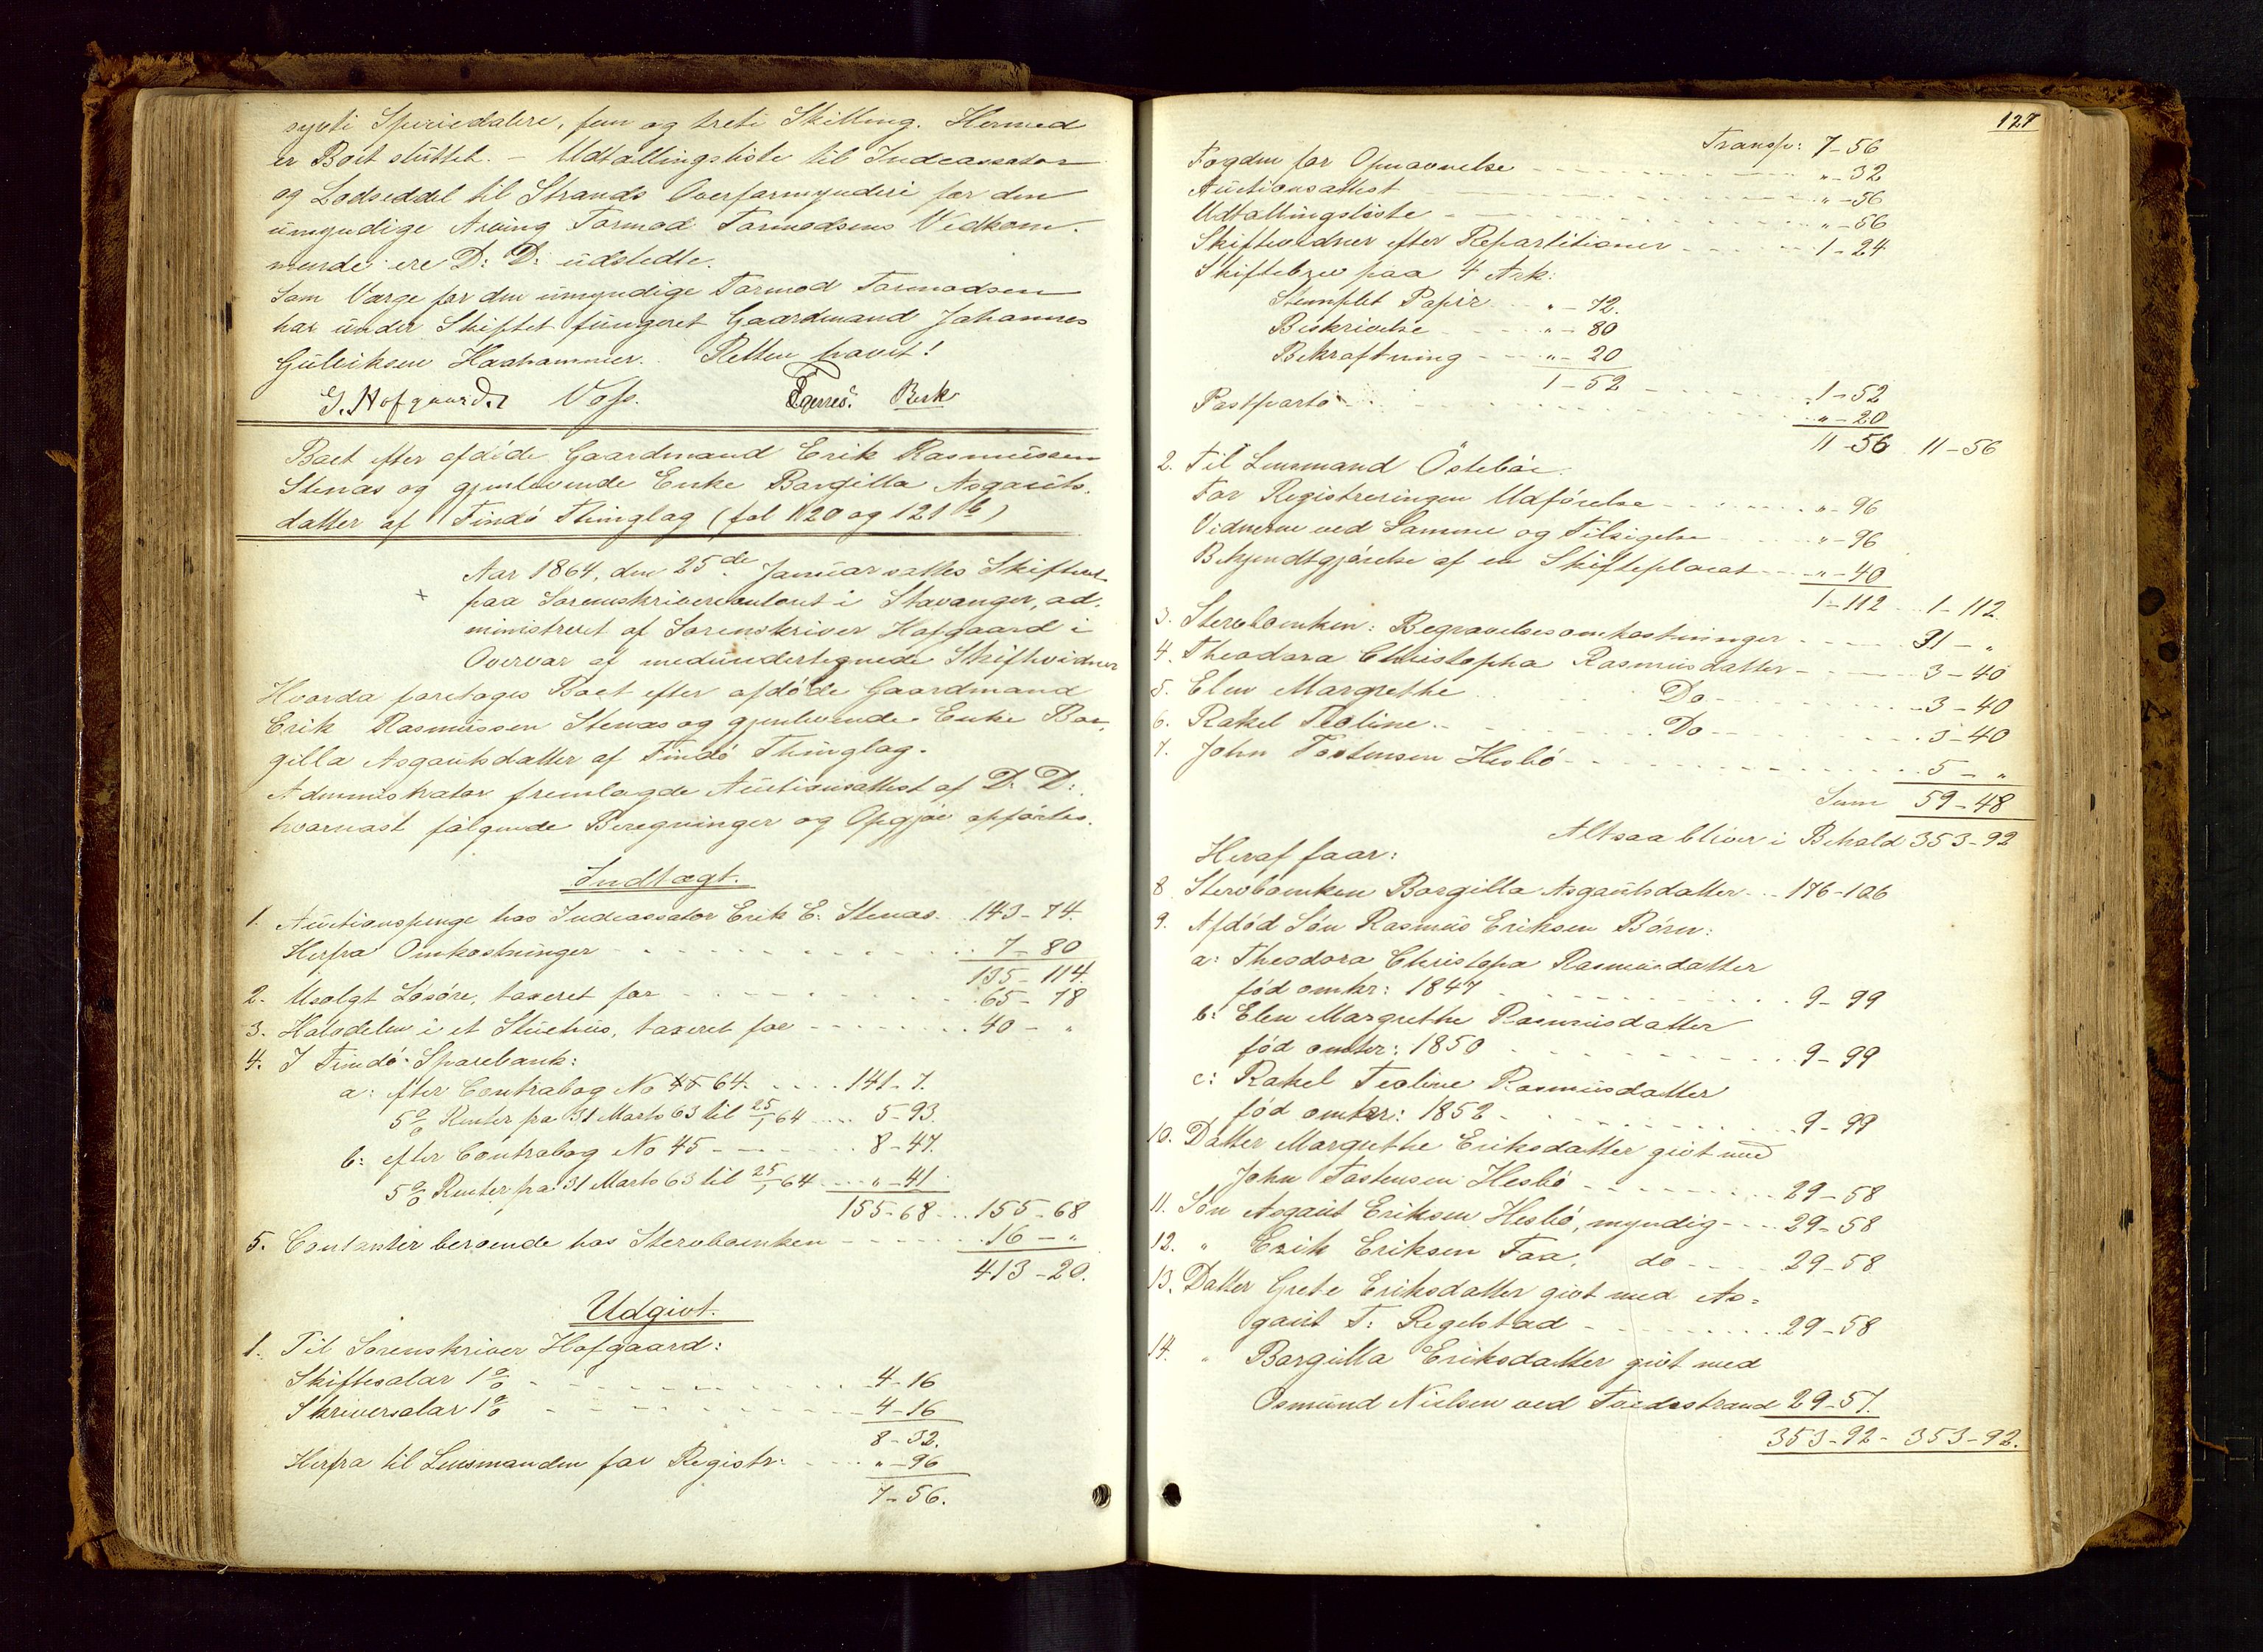 sytti Speciedalere, fem og treti Skilling. Hermed
er Boet sluttet. – Udtallingsliste til Indcassator
og Lodseddel til Strands Overformynderi for den
umyndige Arving Tormod Tormodsens Vedkom-
mende ere D: D: udstedte.
Som Værge for den umyndige Tormod Tormodsen
har under Skiftet fungeret Gaardmand Johannes
Gudviksen Haahammer. Retten hævet!
G. Hofgaard. Voss. Berk
Boet efter afdöde Gaardmand Erik Rasmussen
Stenæs og gjenlevende Enke Borgilla Asgauts-
datter af Findö Thinglag (fol 120 og 121 b)
Aar 1864, den 25de Januar sattes Skifteret
paa Sorenskrivercontoret i Stavanger, ad-
ministreret af Sorenskriver Hofgaard i
Overvær af medundertegnede Skiftevidner
Hvorda foretoges Boet efter afdöde Gaardmand
Erik Rasmussen Stenæs og gjenlevende Enke Bor-
gilla Asgautsdatter af Findö Thinglag.
Administrator fremlagde Auctionsattest af D: D:
hvornæst fölgende Beregninger og Opgjör opförtes.
Indtægt.
1. Auctionspenge hos Indcassator Erik E. Stenæs. 143-74.
Herfra Omkostninger 7-80
135-114.
2. Usolgt Lösöre, taxeret for 65-78
3. Halvdelen i et Stuehus, taxeret for 40 - "
4. I Findö Sparebank:
a: efter Contrabog No 64. 141-7.
5 % Renter fra 31 Marts 63 til 25/1 64 5-93.
b: efter Contrabog No 45 8-47.
5 % Renter fra 31 Marts 63 til 25/1 64 " - 41
155-68 155-68
5. Contanter beroende hos Stervboenken 16 - "
413-20.
Udgivt.
1. Til Sorenskriver Hofgaard:
Skiftesalar 1 % 4-16
Skriversalar 1 % 4-16
8-32.
Herfra til Lensmanden for Registr: " - 96
7-56.
127
Transp: 7-56
Fogden for Opnævnelse " - 32
Auctionsattest " - 56
Udtallingsliste " - 56
Skiftevidner efter Repartitioner 1-24
Skiftebrev paa 4 Ark:
Stemplet Papir " - 72.
Beskrivelse " - 80
Bekræftning " - 20
1-52 1-52
Postporto " - 20
11-56 11-56
2. Til Lensmand Östeböe:
For Registreringen Udförelse " - 96
Vidnerne ved Samme og Tilsigelse " - 96
Bekjendtgjörelse af en Skifteplacat " - 40
1-112 1-112.
3. Stervboenken: Begravelsesomkostninger 31 - "
4. Theodora Christopha Rasmusdatter 3-40
5. Elen Margrethe Do 3-40
6. Rakel Teoline Do 3-40
7. John Tostensen Hesbö 5 - "
Sum 59-48
Altsaa bliver i Behold 353-92
Heraf faar:
8. Stervboenken Borgilla Asgautsdatter 176-106
9. Afdöd Sön Rasmus Eriksen Börn:
a: Theodora Christopa Rasmusdatter
föd omkr: 1847 9-99
b: Elen Margrethe Rasmusdatter
föd omkr: 1850 9-99
c: Rakel Teoline Rasmusdatter
föd omkr: 1852 9-99
10. Datter Margrethe Eriksdatter givt med
John Tostensen Hesbö 29-58
11. Sön Asgaut Eriksen Hesbö, myndig 29-58
12. " Erik Eriksen Faa, do 29-58
13. Datter Grete Eriksdatter givt med As-
gaut T: Regelstad 29-58
14. " Borgilla Eriksdatter givt med
Osmund Nielsen ved Tvedestrand 29-57.
353-92 - 353-92.